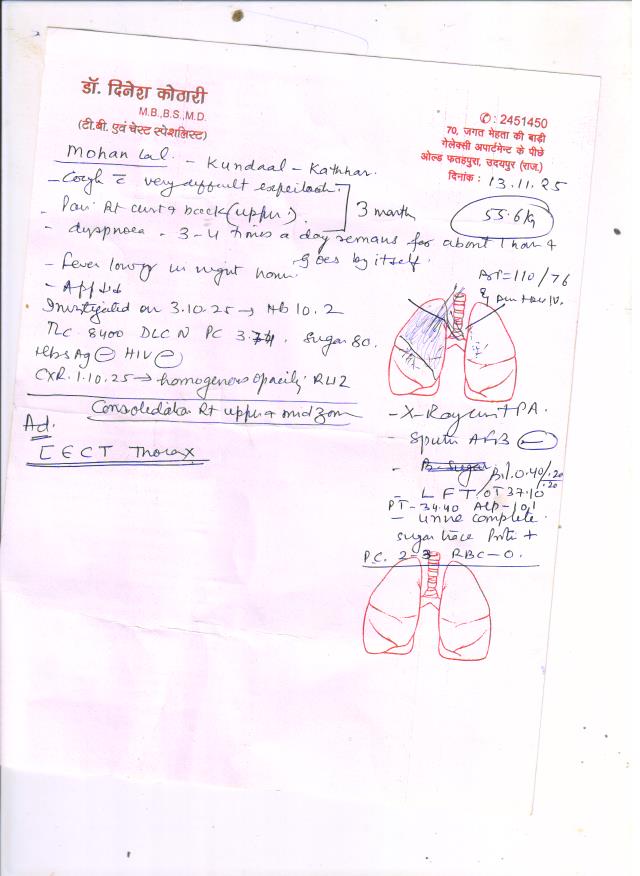 डॉ. दिनेश कोठारी
M.B.,B.S.,M.D.
(टी.बी. एवं चेस्ट स्पेशलिस्ट)
✆: 2451450
70, जगत मेहता की बाड़ी
गेलेक्सी अपार्टमेन्ट के पीछे
ओल्ड फतहपुरा, उदयपुर (राज.)
दिनांक : 13.11.25
Mohan Lal. - Kundaal - Kathhar.
55.6 kg
- Cough c̄ very difficult
- Pain Rt chest & back (upper).
3 month
- dyspnoea - 3-4 times a day remans for about 1 hour &
goes by itself.
- Fever low gr in night
BP = 110/76
- App ↓↓
Investigated on 3.10.25 → Hb 10.2
TLC 8400 DLC N PC Sugar 80.
HbsAg ⊖ HIV ⊖
CXR. 1.10.25 → homogenous opacity RUZ
Consoledation Rt upper & mid zone
Ad.
CECT Thorax
- X-Ray chest PA.
- Sputm AFB ⊖
- B. Sugar
Bil. 0.40/.20
.20
- LFT / OT 37.10
PT - 34.40 ALP - 101
- urine complete.
sugar trace Protein +
P.C. 2-3 RBC - 0.